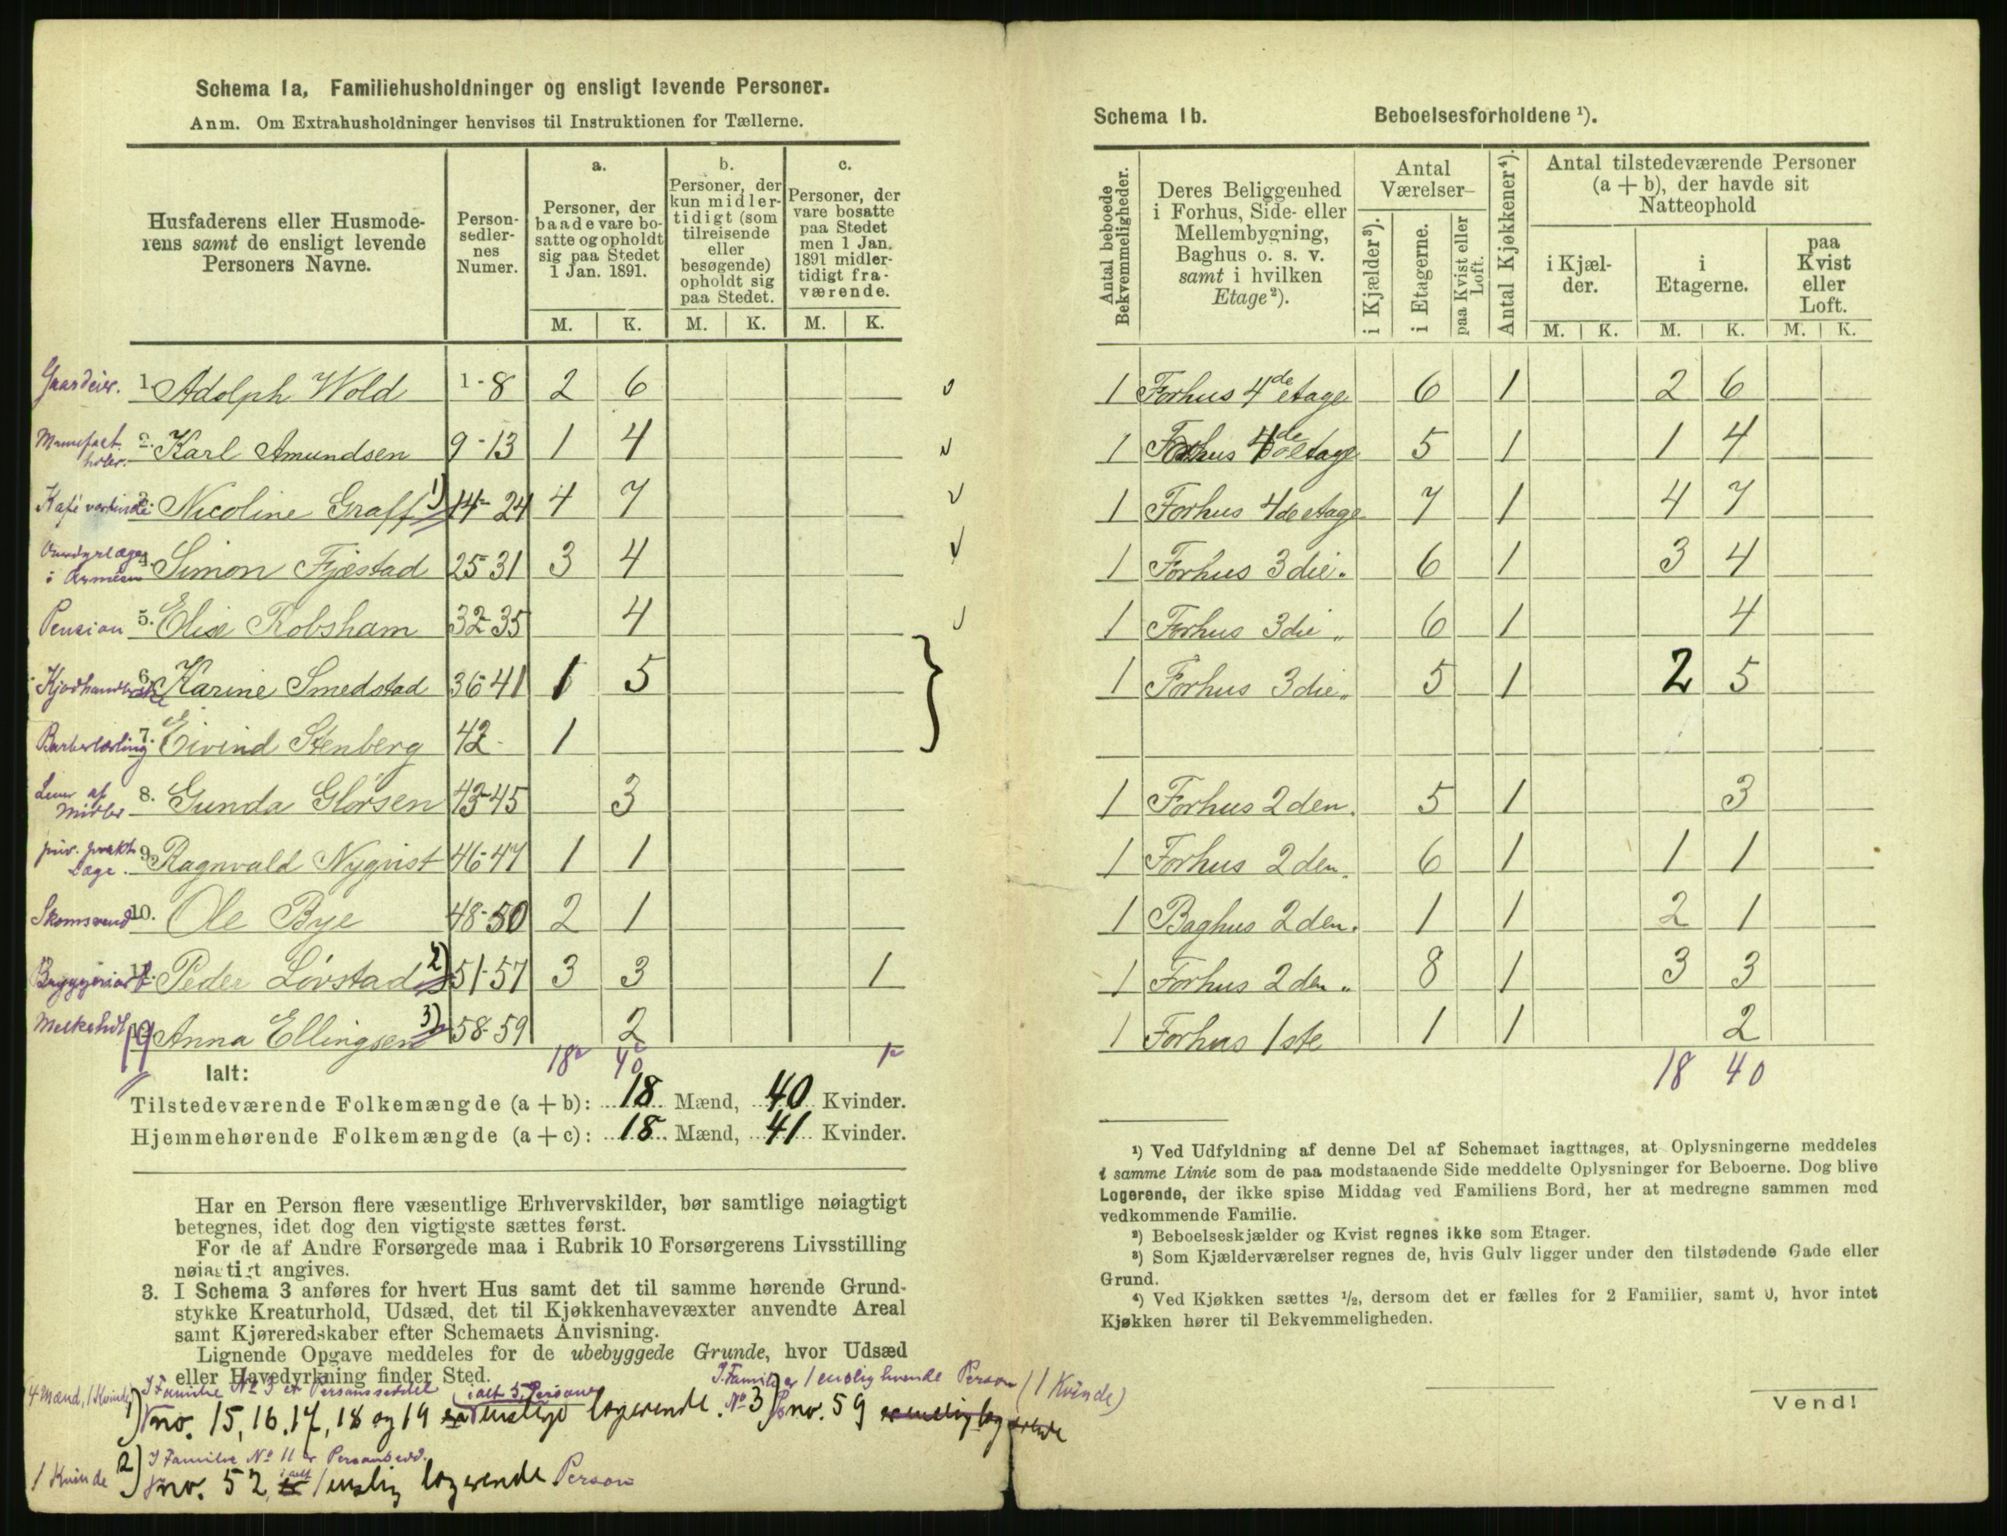 Schema 1a, Familiehusholdninger og ensligt levende Personer.
Anm. Om Extrahusholdninger henvises til Instruktionen for Tællerne.
Husfaderens eller Husmoderens samt de ensligt levende Personers Navne.
Personsedlernes Numer.
a.
Personer, der baade vare bosatte og opholdt sig paa Stedet 1 Jan. 1891.
b.
Personer, der kun midlertidigt (som tilreisende eller besøgende) opholdt sig paa Stedet.
c.
Personer, der vare bosatte paa Stedet men 1 Jan. 1891 midlertidigt fraværende.
M. K. M. K. M. K.
Gaardeier. 1. Adolph Wold 1-8 2 6
2. Karl Amundsen 9-13 1 4
3. Nicoline Graff 1) 14-24 4 7
4. Simon Fjæstad 25-31 3 4
Pension 5. Elise Robsham 32-35 4
6. Karine Smedstad 36-41 1 5
Barberlærling 7. Eivind Stenberg 42 1
Lever af Midler 8. Gunda Glørsen 43-45 3
priv. prakt. Læge. 9. Ragnvald Nyqvist 46-47 1 1
Skomsvend 10. Ole Bye 48-50 2 1
11. Peder Løvstad 2) 51-57 3 3 1
Anna Ellingsen 3) 58-59 2
18 40 1
Ialt:
Tilstedeværende Folkemængde (a + b): 18 Mænd, 40 Kvinder.
Hjemmehørende Folkemængde (a + c): 18 Mænd, 41 Kvinder.
Har en Person flere væsentlige Erhvervskilder, bør samtlige nøiagtigt
betegnes, idet dog den vigtigste sættes først.
For de af Andre Forsørgede maa i Rubrik 10 Forsørgerens Livsstilling
nøiagtigt angives.
3. I Schema 3 anføres for hvert Hus samt det til samme hørende Grund-
stykke Kreaturhold, Udsæd, det til Kjøkkenhavevæxter anvendte Areal
samt Kjøreredskaber efter Schemaets Anvisning.
Lignende Opgave meddeles for de ubebyggede Grunde, hvor Udsæd
eller Havedyrkning finder Sted.
4 Mænd, 1 Kvinde 1) I Familie No 3 er Personseddel
no. 15, 16, 17, 18 og 19 ialt 5 Personer enslige logerende.
3) I Familie No er 1 enslig levende Person (1 Kvinde)
no. 59
2) I Familie No 11 er Personsedd.
1 Kvinde no. 52, ialt 1 enslig logerende Person
Schema 1b. Beboelsesforholdene ¹).
Antal beboede Bekvemmeligheder.
Deres Beliggenhed i Forhus, Side- eller Mellembygning, Baghus o. s. v. samt i hvilken Etage²).
Antal Værelser
i Kjælder³).
i Etagerne.
paa Kvist eller Loft.
Antal Kjøkkener⁴).
Antal tilstedeværende Personer (a + b), der havde sit Natteophold
i Kjælder.
i Etagerne.
paa Kvist eller Loft.
M. K. M. K. M. K.
1 Forhus 4de etage 6 1 2 6
1 Forhus 4de etage 5 1 1 4
1 Forhus 4de etage 7 1 4 7
1 Forhus 3die „ 6 1 3 4
1 Forhus 3die „ 6 1 4
1 Forhus 3die „ 5 1 2 5
1 Forhus 2den. 5 1 3
1 Forhus 2den. 6 1 1 1
1 Baghus 2den. 1 1 2 1
1 Forhus 2den „ 8 1 3 3
1 Forhus 1ste 1 1 2
18 40
¹) Ved Udfyldning af denne Del af Schemaet iagttages, at Oplysningerne meddeles
i samme Linie som de paa modstaaende Side meddelte Oplysninger for Beboerne. Dog blive
Logerende, der ikke spise Middag ved Familiens Bord, her at medregne sammen med
vedkommende Familie.
²) Beboelseskjælder og Kvist regnes ikke som Etager.
³) Som Kjælderværelser regnes de, hvis Gulv ligger under den tilstødende Gade eller
Grund.
⁴) Ved Kjøkken sættes ½, dersom det er fælles for 2 Familier, samt 0, hvor intet
Kjøkken hører til Bekvemmeligheden.
Vend!